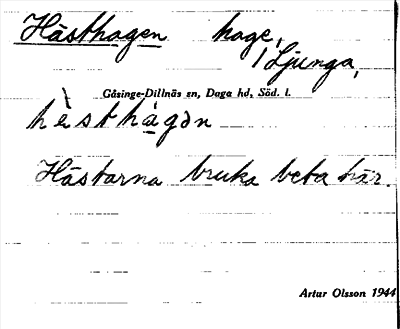 Hästhagen hage,
/ Ljunga,
Gåsinge-Dillnäs sn, Daga hd, Söd. l.
hɛ̀sthàgən
Hästarna bruka beta här.
Artur Olsson 1944